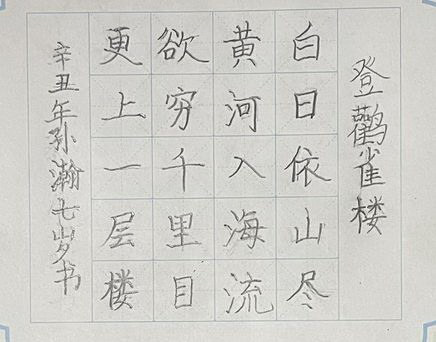 登鹳雀楼
白日依山尽
黄河入海流
欲穷千里目
更上一层楼
辛丑年孙瀚七岁书